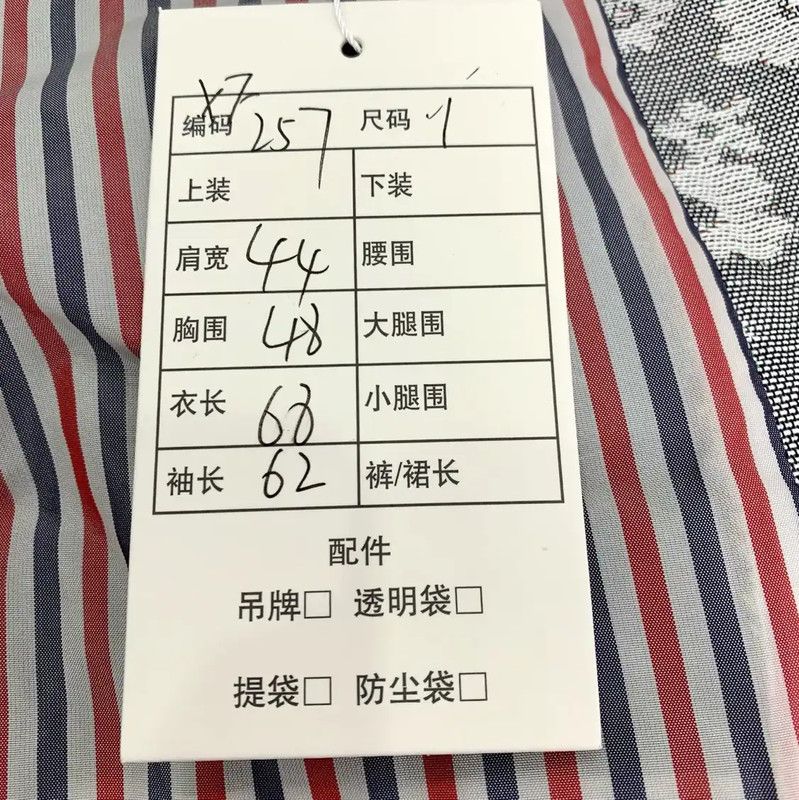 X7
编码 257 尺码 1
上装 下装
肩宽 44 腰围
胸围 48 大腿围
衣长 68 小腿围
袖长 62 裤/裙长
配件
吊牌□ 透明袋□
提袋□ 防尘袋□